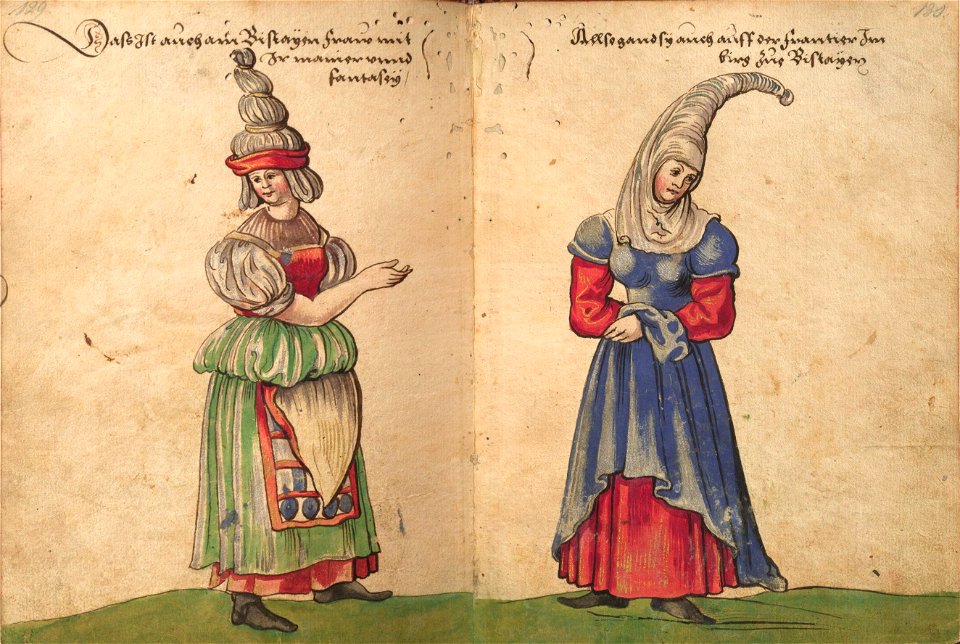 129
Das Ist auch ain Biskayen frauw mit
Ir manier vnnd
fantasey
Also gand sy auch auff der frantier Im
birg zue Biskayen